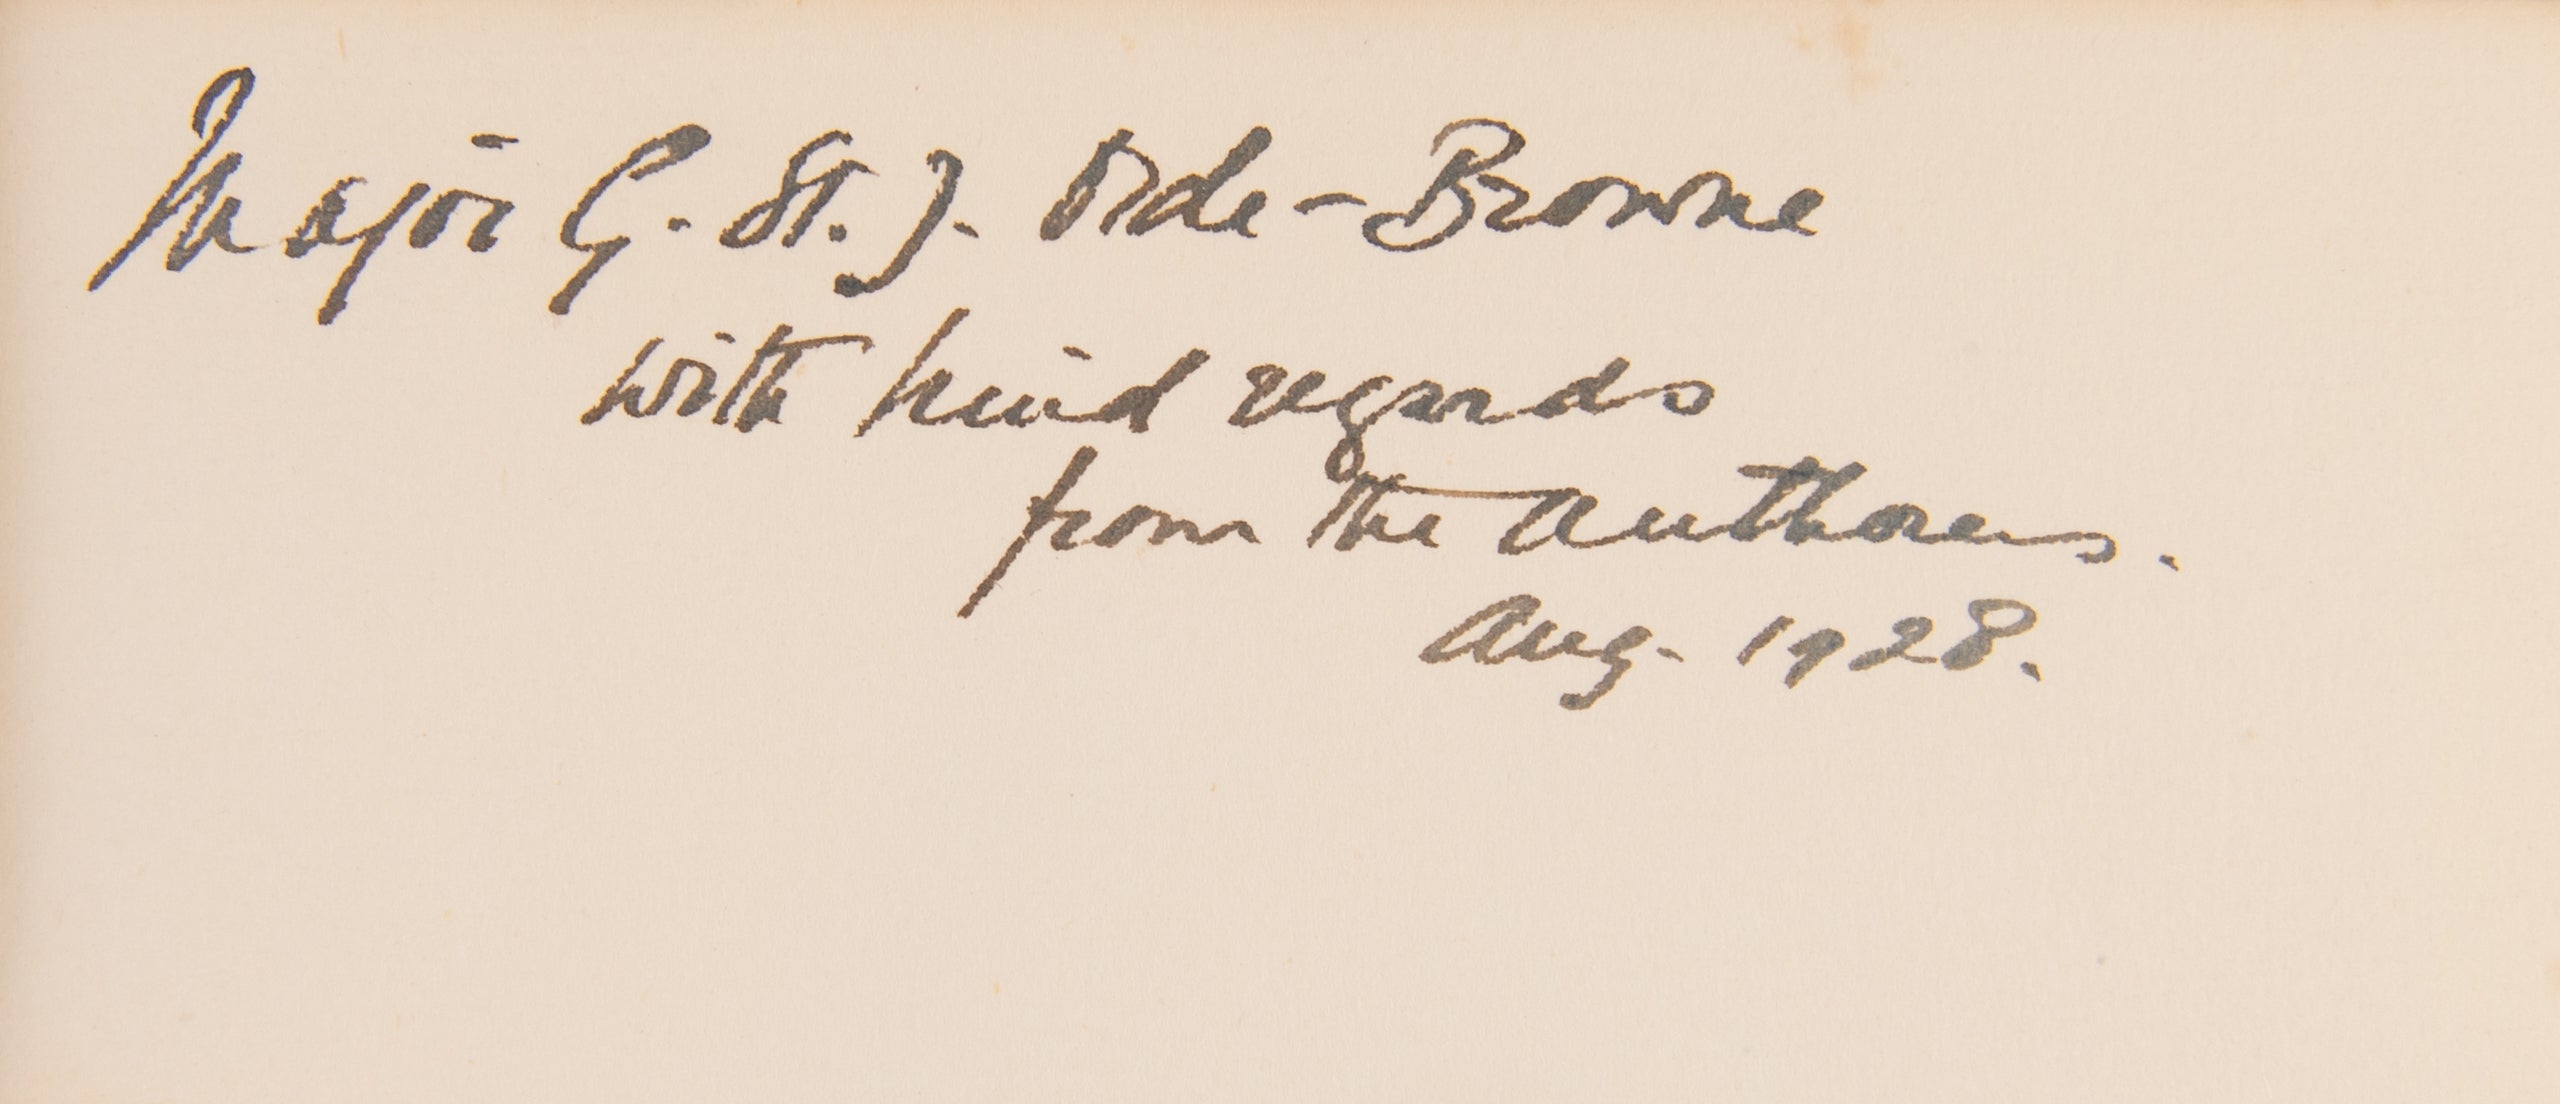 Major G. St. J. Orde-Browne
with kind regards
from the Authoress.
Aug. 1928.